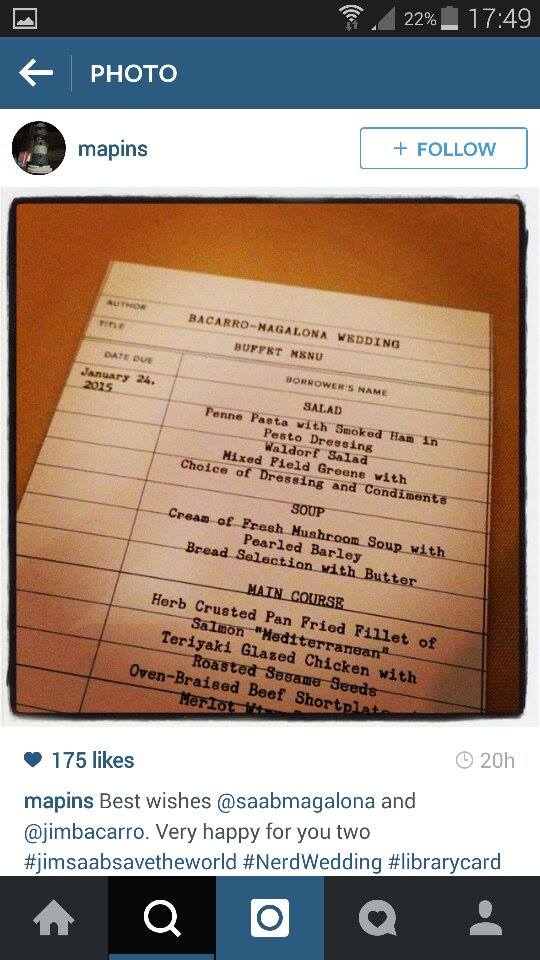 22% 17:49
PHOTO
mapins
+ FOLLOW
AUTHOR
BACARRO-MAGALONA WEDDING
TITLE
BUFFET MENU
DATE DUE
BORROWER'S NAME
January 24,
2015
SALAD
Penne Pasta with Smoked Ham in
Pesto Dressing
Waldorf Salad
Mixed Field Greens with
Choice of Dressing and Condiments
SOUP
Cream of Fresh Mushroom Soup with
Pearled Barley
Bread Selection with Butter
MAIN COURSE
Herb Crusted Pan Fried Fillet of
Salmon "Mediterranean"
Teriyaki Glazed Chicken with
Roasted Sesame Seeds
Oven-Braised Beef Shortplate
Merlot
175 likes
20h
mapins Best wishes @saabmagalona and
@jimbacarro. Very happy for you two
#jimsaabsavetheworld #NerdWedding #librarycard